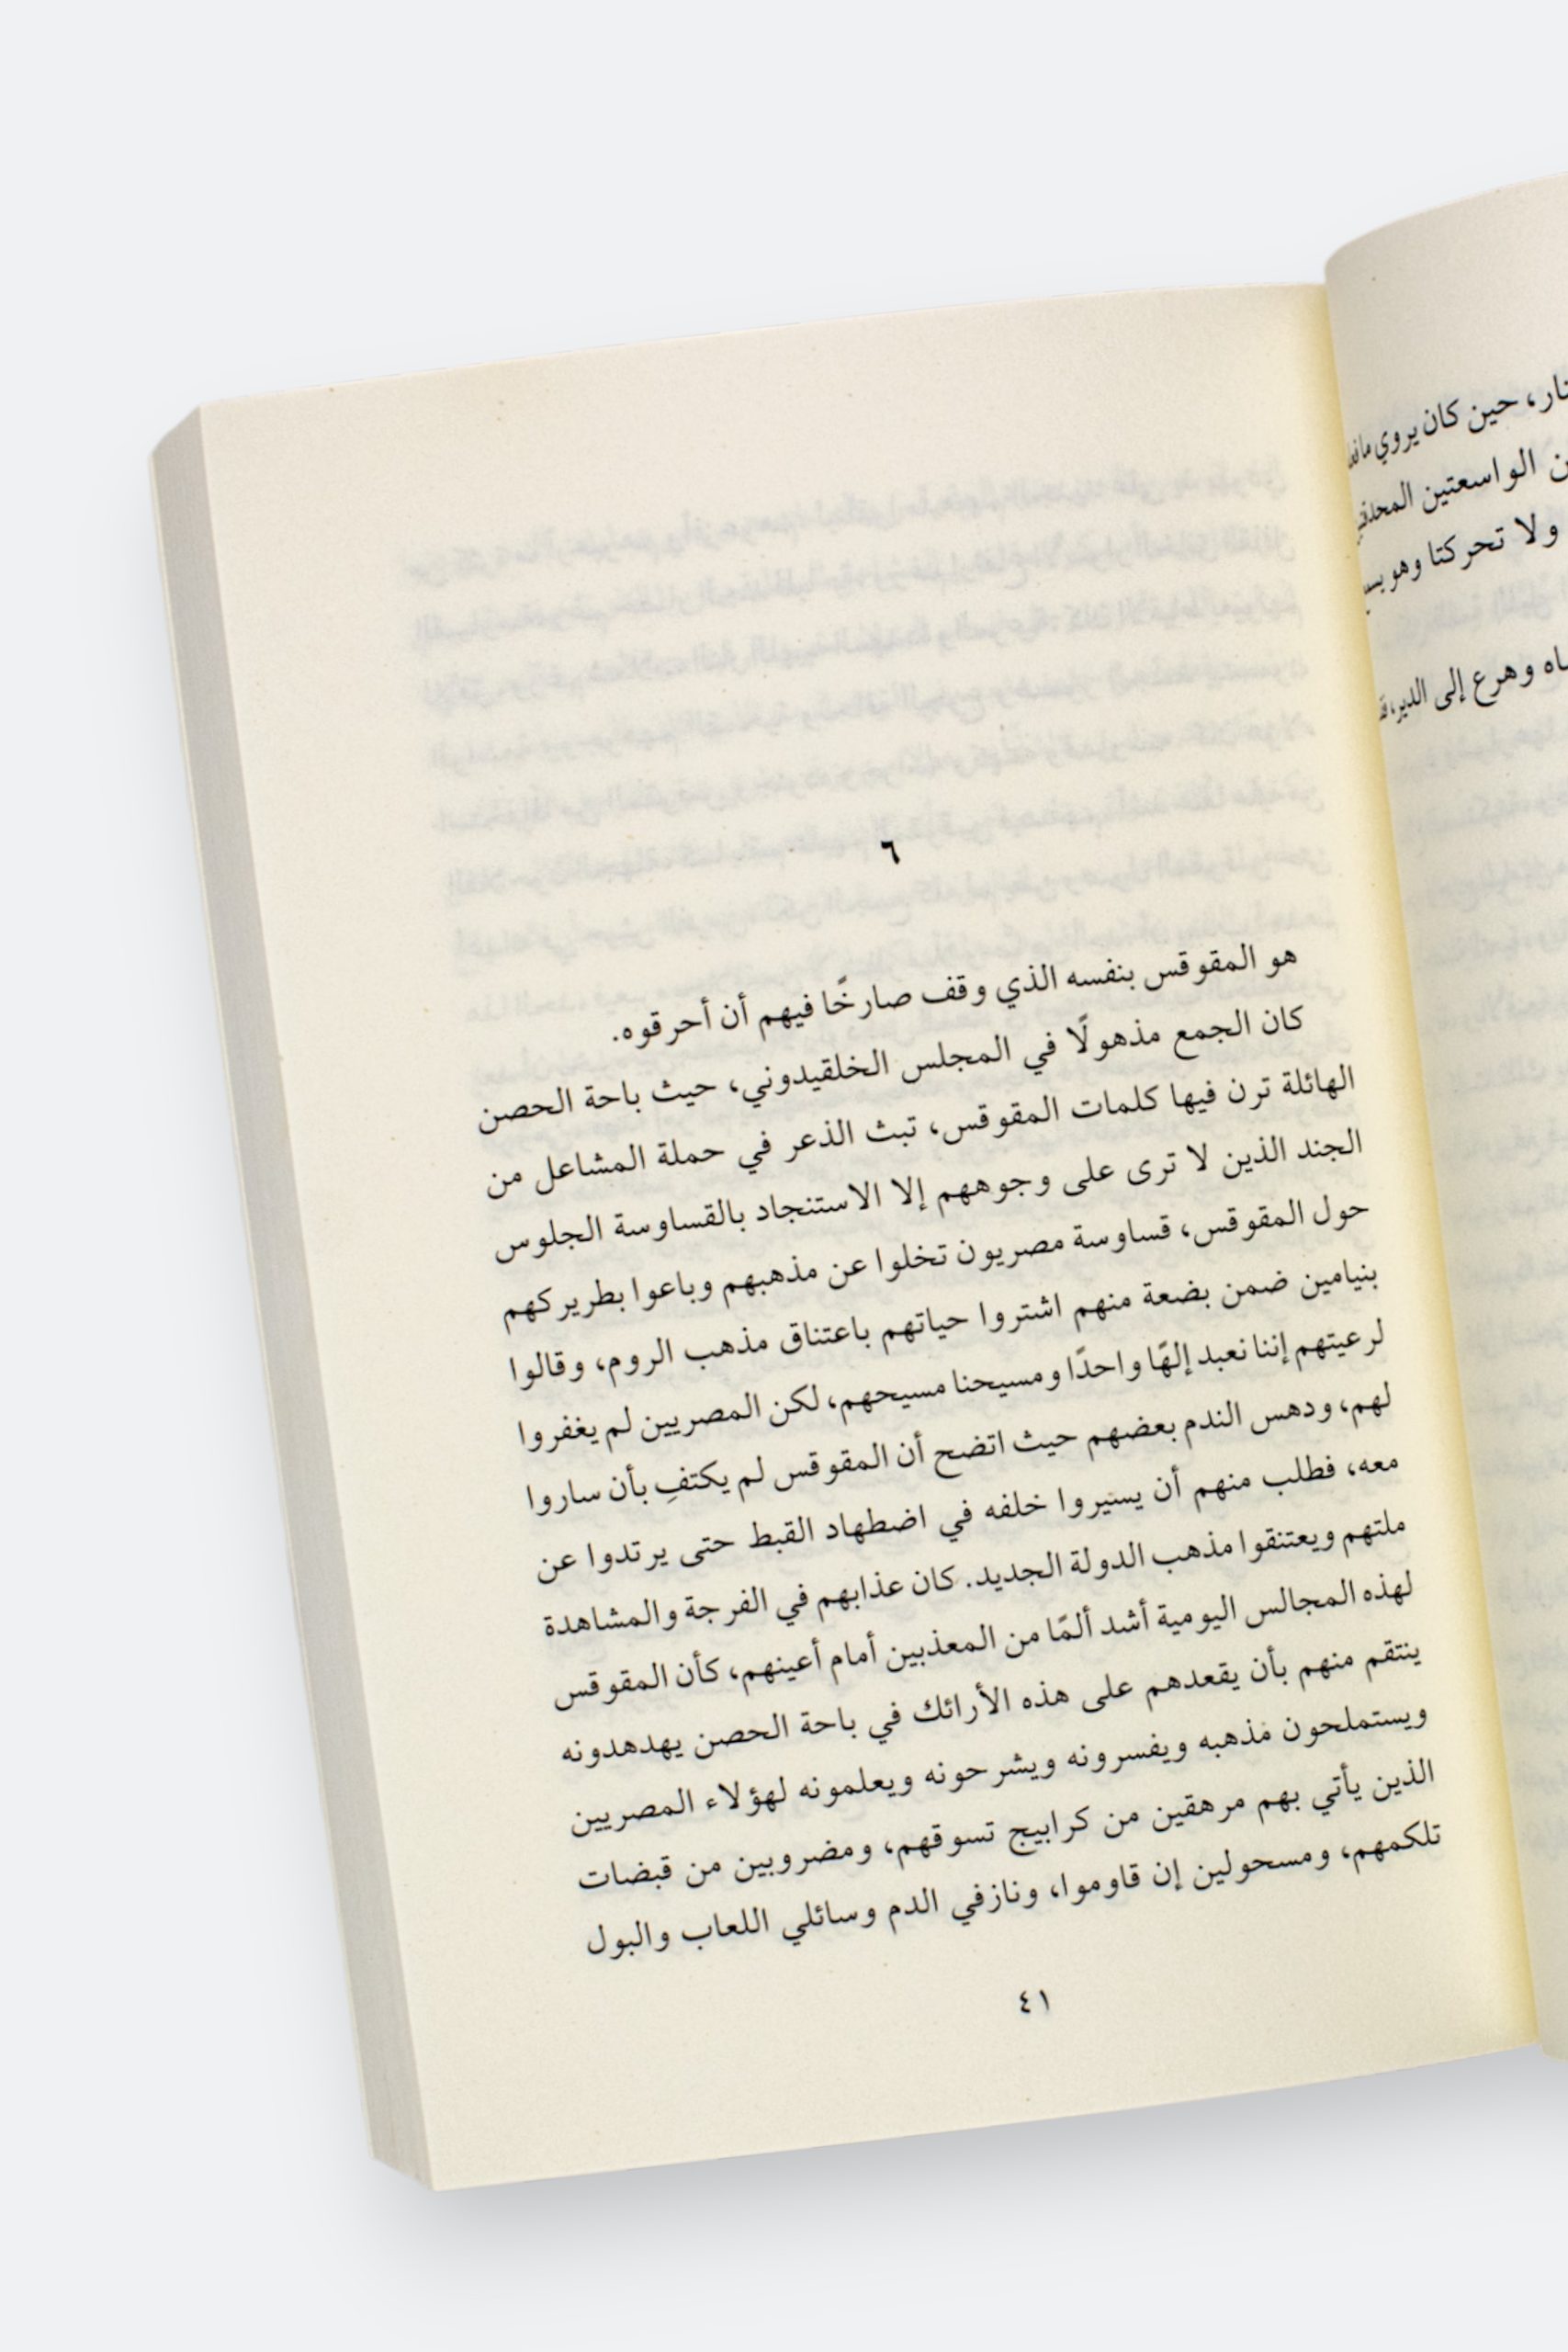 نار، حين كان يروي
الواسعتين
ولا تحركتا وهو
وهرع إلى الدير،
٦
هو المقوقس بنفسه الذي وقف صارخًا فيهم أن أحرقوه.
كان الجمع مذهولًا في المجلس الخلقيدوني، حيث باحة الحصن
الهائلة ترن فيها كلمات المقوقس، تبث الذعر في حملة المشاعل من
الجند الذين لا ترى على وجوههم إلا الاستنجاد بالقساوسة الجلوس
حول المقوقس، قساوسة مصريون تخلوا عن مذهبهم وباعوا بطريركهم
بنيامين ضمن بضعة منهم اشتروا حياتهم باعتناق مذهب الروم، وقالوا
لرعيتهم إننا نعبد إلهًا واحدًا ومسيحنا مسيحهم، لكن المصريين لم يغفروا
لهم، ودهس الندم بعضهم حيث اتضح أن المقوقس لم يكتفِ بأن ساروا
معه، فطلب منهم أن يسيروا خلفه في اضطهاد القبط حتى يرتدوا عن
ملتهم ويعتنقوا مذهب الدولة الجديد. كان عذابهم في الفرجة والمشاهدة
لهذه المجالس اليومية أشد ألمًا من المعذبين أمام أعينهم، كأن المقوقس
ينتقم منهم بأن يقعدهم على هذه الأرائك في باحة الحصن يهدهدونه
ويستملحون مذهبه ويفسرونه ويشرحونه ويعلمونه لهؤلاء المصريين
الذين يأتي بهم مرهقين من كرابيج تسوقهم، ومضروبين من قبضات
تلكمهم، ومسحولين إن قاوموا، ونازفي الدم وسائلي اللعاب والبول
٤١